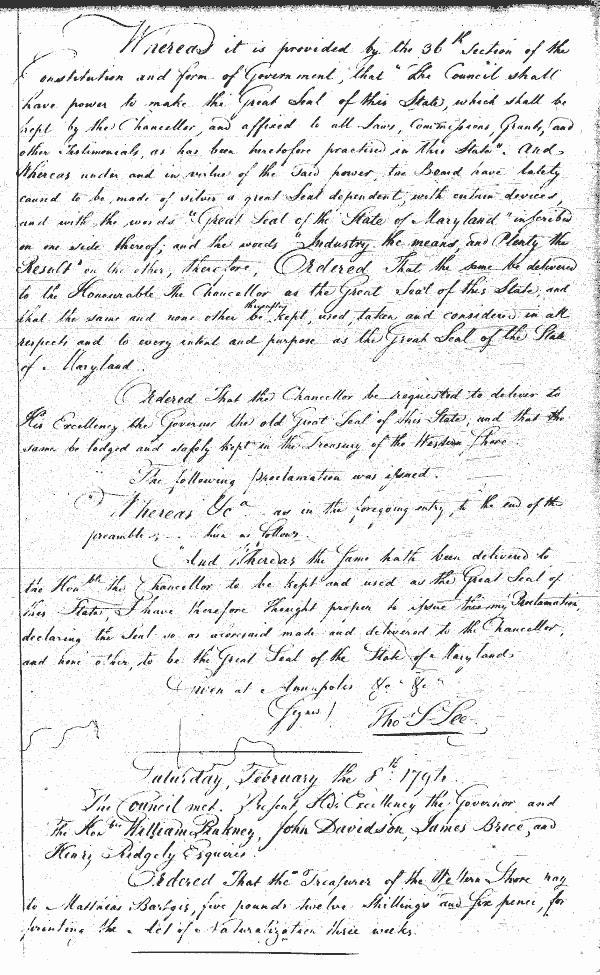 Whereas it is provided by the 36th Section of the
Constitution and form of Government, that "The Council shall
have power to make the Great Seal of this State, which shall be
kept by the Chancellor, and affixed to all Laws, Commissions, Grants, and
other Testimonials, as has been heretofore practised in this State". And
Whereas under and in virtue of the said power, the Board have lately
caused to be made of silver a great Seal dependent, with certain devices,
and with the words "Great Seal of the State of Maryland" inscribed
on one side thereof, and the words "Industry the means, and Plenty the
Result" on the other, therefore, Ordered That the same be delivered
to the Honourable The Chancellor as the Great Seal of this State, and
that the same and none other be thereafter kept, used, taken and considered in all
respects and to every intent and purpose as the Great Seal of the State
of Maryland.
Ordered That the Chancellor be requested to deliver to
His Excellency the Governor the old Great Seal of this State, and that the
same be lodged and safely kept in the Treasury of the Western Shore.
The following Proclamation was issued.
Whereas &ca as in the foregoing entry, to the end of the
preamble, then as follows.
"And Whereas the same hath been delivered to
the Honble the Chancellor to be kept and used as the Great Seal of
this State, I have therefore thought proper to issue this my Proclamation,
declaring the Seal so as aforesaid made and delivered to the Chancellor,
and none other, to be the Great Seal of the State of Maryland.
Given at Annapolis &c &c
Signed Tho S. Lee
Saturday, February the 8th 1794.
The Council met. Present His Excellency the Governor and
the Honble William Pinkney, John Davidson, James Brice, and
Henry Ridgely Esquires.
Ordered That the Treasurer of the Western Shore pay
to Matthias Bartgis, five pounds twelve Shillings and six pence, for
printing the Act of Naturalization three weeks.